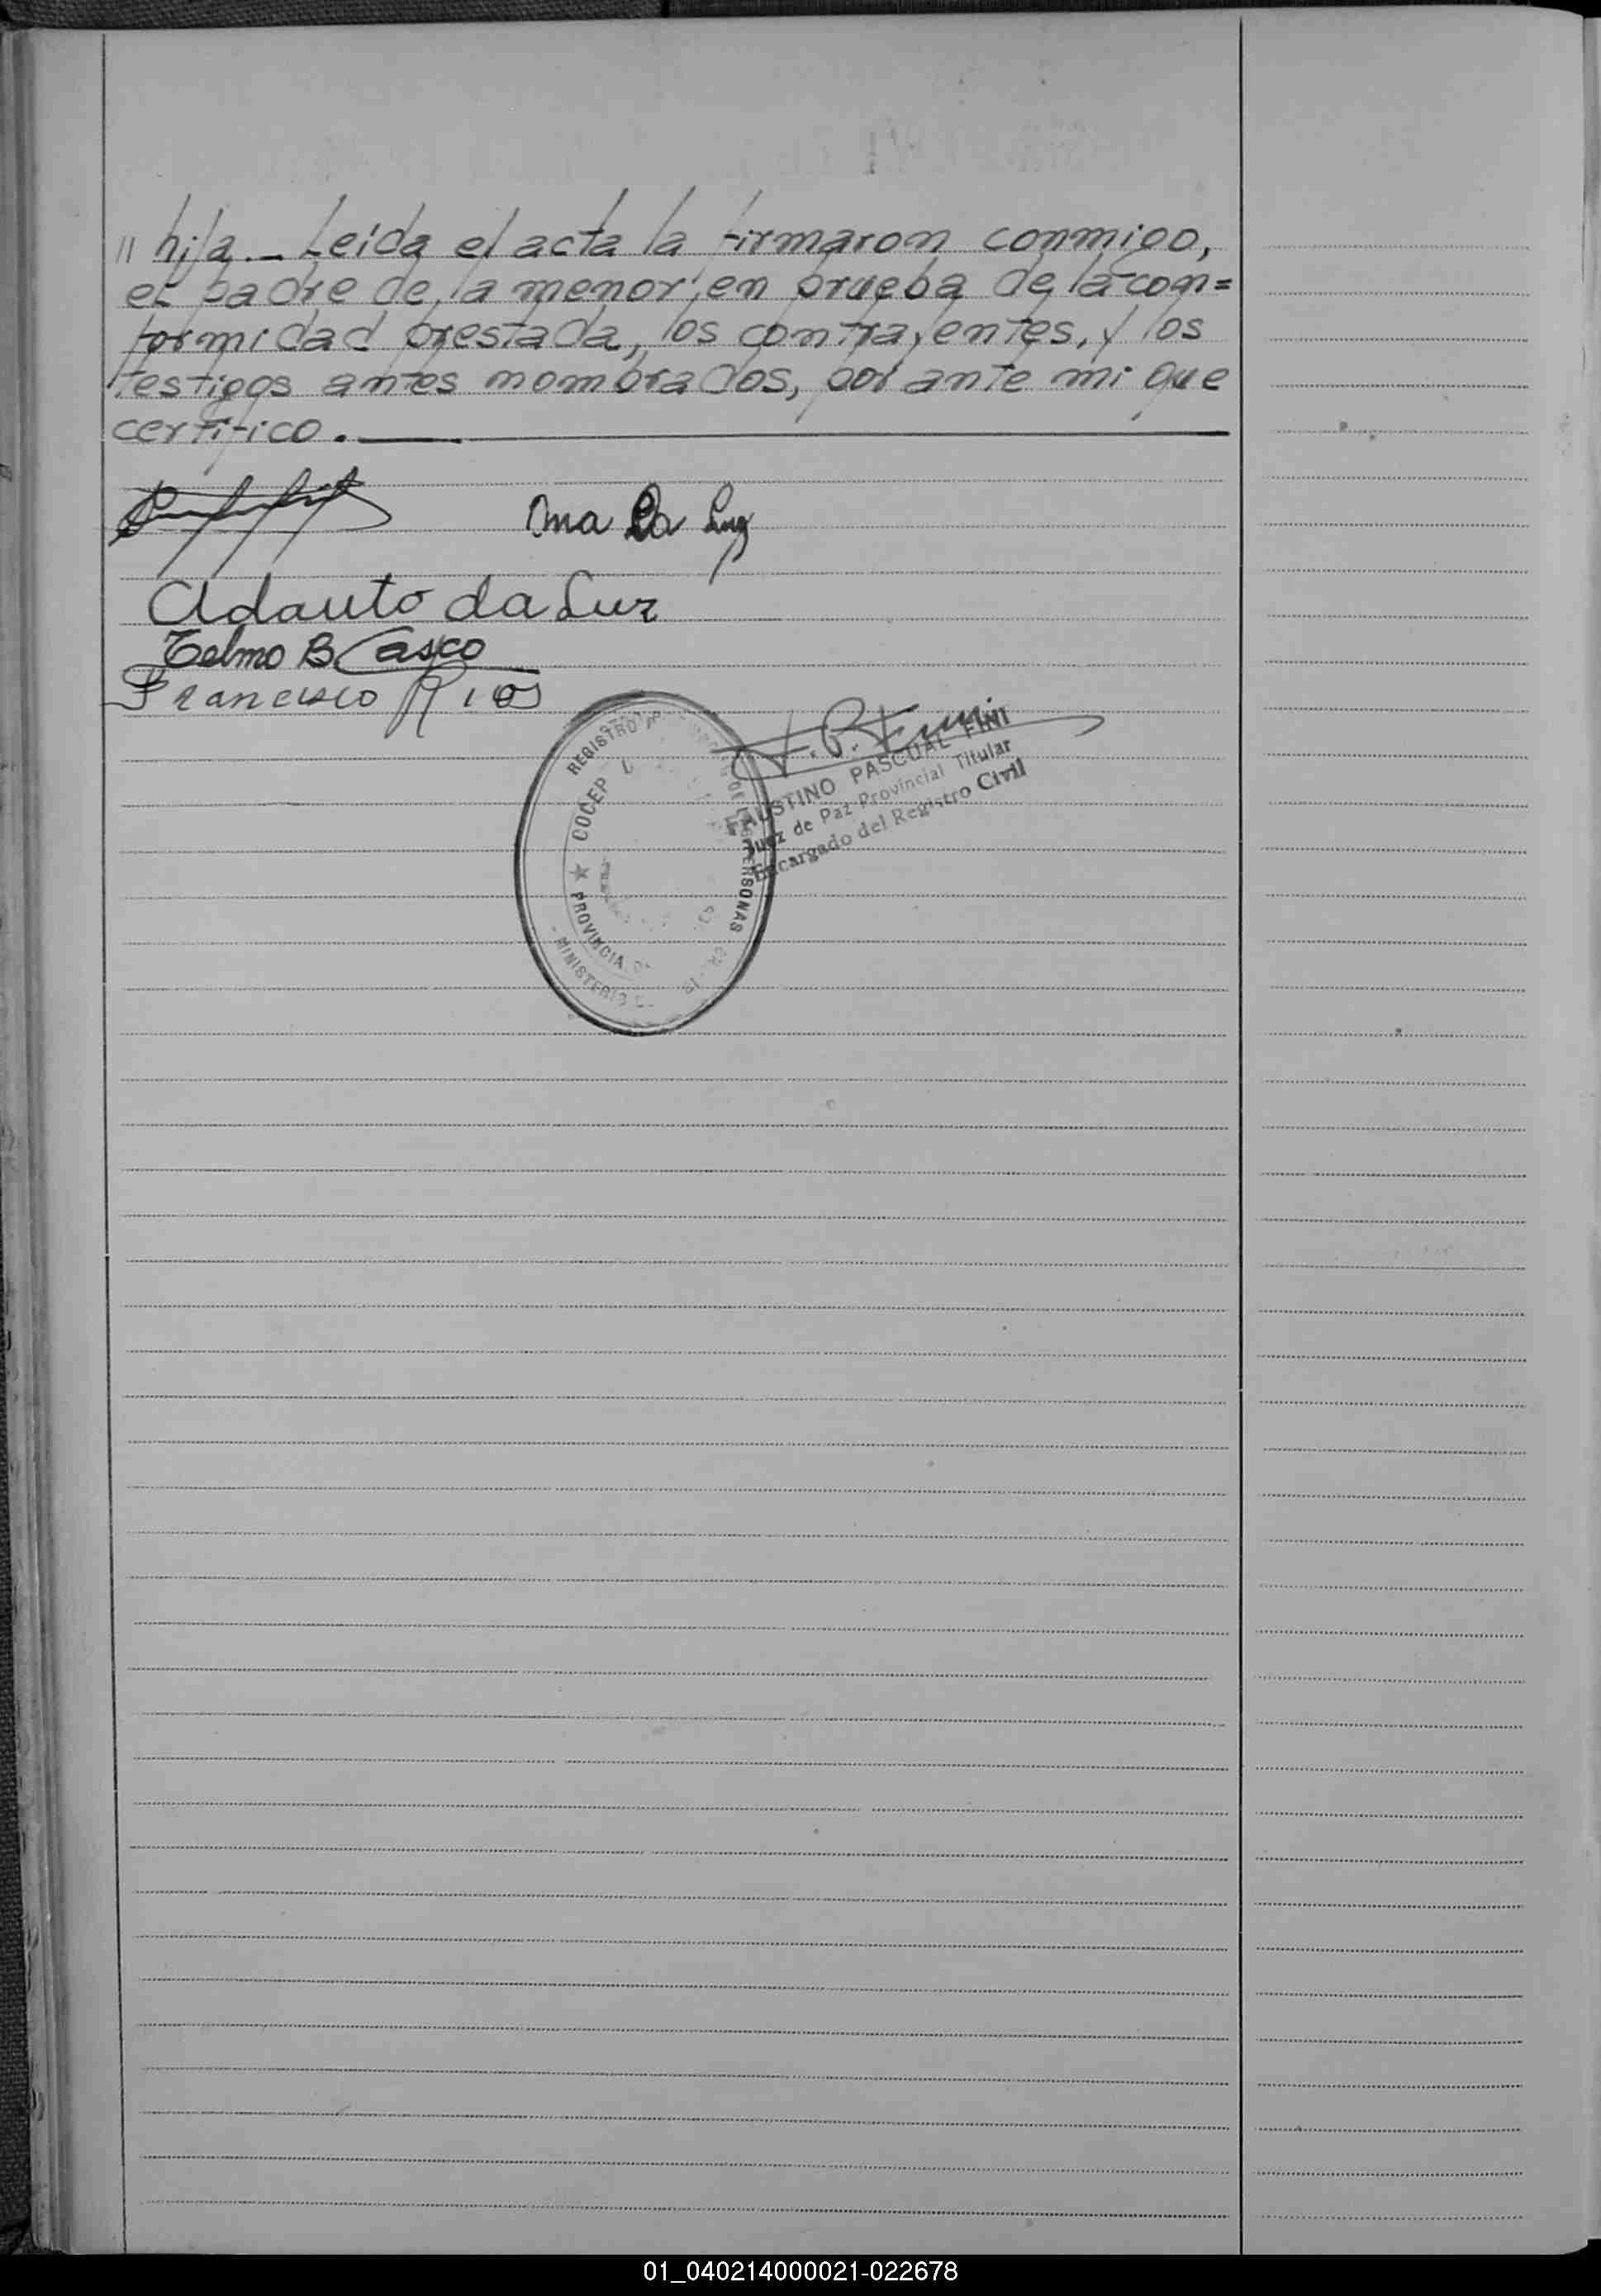 " hija._ Leída el acta la firmaron conmigo,
el padre de la menor, en prueba de la con=
formidad prestada, los contrayentes, y los
testigos antes nombrados, por ante mi que
certifico.
Ana Da Luz
Adauto da Luz
Telmo B Casco
Francisco Rios
F.P. Fini
FAUSTINO PASCUAL FINI
Juez de Paz Provincial Titular
Encargado del Registro Civil
REGISTRO
DE LAS PERSONAS
PROVINCIA
MINISTERIO
01_040214000021-022678